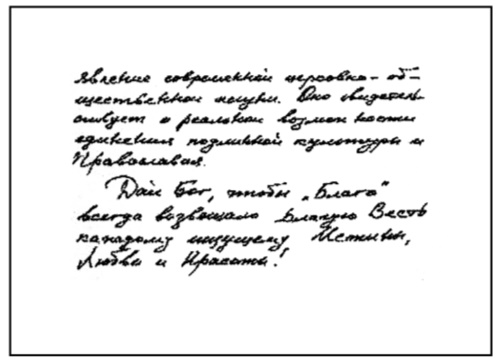 явление современной церковно-об-
щественной жизни. Оно свидетель-
ствует о реальной возможности
единения подлинной культуры и
Православия.
Дай Бог, чтобы „Благо"
всегда возвещало Благую Весть
каждому ищущему Истины,
Любви и Красоты!